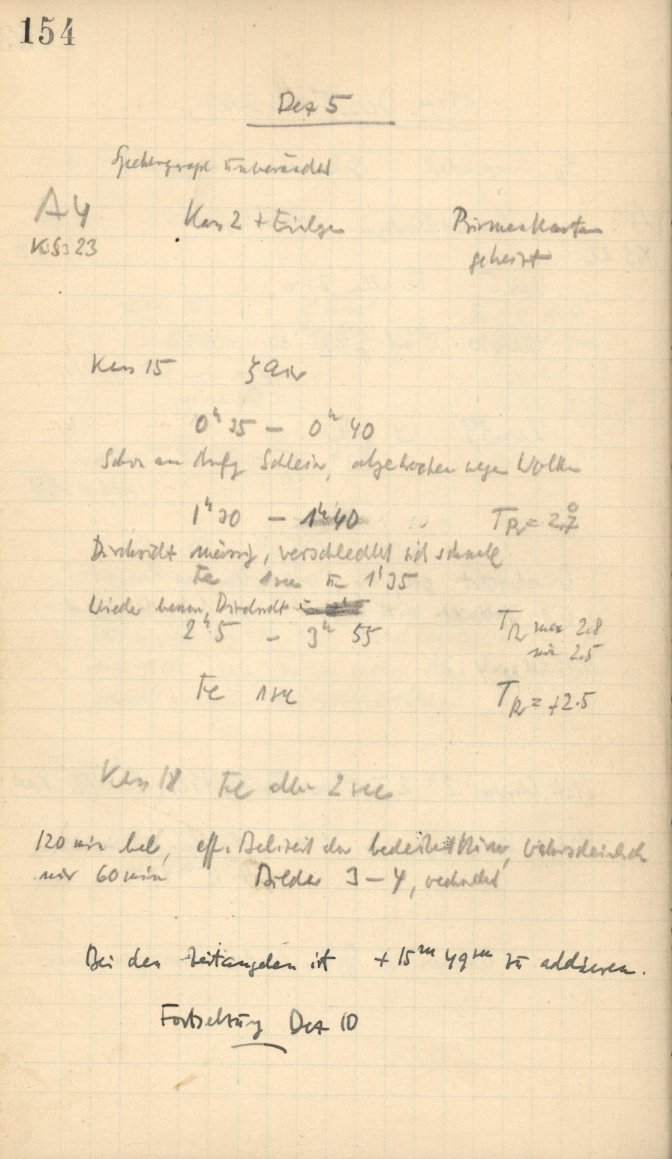 154
Dez 5
Spektrograph unverändert
A4 Kass 2 + Prismenkasten
Kass 23 geheizt
Kass 15 ζ Aur
0ʰ 35 – 0ʰ 40
Schon am Anfg Schleier, abgebrochen wegen Wolken
1ʰ 30 – 1ʰ 40 T Pr = 2.7°
Durchsicht mässig, verschlechtert sich schnell
Fe 1 sec 1ʰ 35
Wieder Durchsicht
2ʰ 5 – 3ʰ 55 T Pr max 2.8
min 2.5
Fe 1 sec T Pr = +2.5
Kass 18 Fe 2 sec
120 min bel, eff. Belizeit aber bedeutend kürzer, wahrscheinlich
nur 60 min Bilder 3 – 4,
Bei den Zeitangaben ist + 15ᵐ 49 zu addieren.
Fortsetzung Dez 10